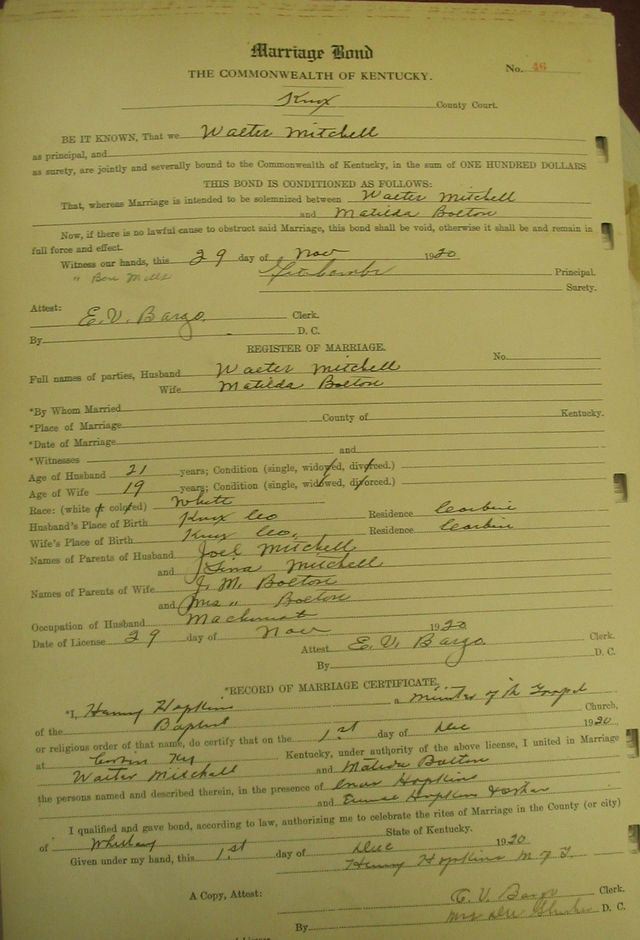 Marriage Bond
THE COMMONWEALTH OF KENTUCKY.
No. 46
Knox County Court.
BE IT KNOWN, That we Walter Mitchell
as principal, and
as surety, are jointly and severally bound to the Commonwealth of Kentucky, in the sum of ONE HUNDRED DOLLARS
THIS BOND IS CONDITIONED AS FOLLOWS:
That, whereas Marriage is intended to be solemnized between Walter Mitchell
and Matilda Bolton
Now, if there is no lawful cause to obstruct said Marriage, this bond shall be void, otherwise it shall be and remain in
full force and effect.
Witness our hands, this 29 day of Nov 1920
" Ben Mills Principal.
Surety.
Attest:
E. V. Bargo Clerk.
By D. C.
REGISTER OF MARRIAGE.
No.
Full names of parties, Husband Walter Mitchell
Wife Matilda Bolton
*By Whom Married
*Place of Marriage County of Kentucky.
*Date of Marriage
*Witnesses and
Age of Husband 21 years; Condition (single, widowed, divorced.)
Age of Wife 19 years; Condition (single, widowed, divorced.)
Race: (white or colored) White
Husband's Place of Birth Knox Co Residence Corbin
Wife's Place of Birth Knox Co. Residence Corbin
Names of Parents of Husband Joel Mitchell
and Mitchell
Names of Parents of Wife J. M. Bolton
and Mrs " Bolton
Occupation of Husband Machinist
Date of License 29 day of Nov 1920
Attest E. V. Bargo Clerk.
By D. C.
*RECORD OF MARRIAGE CERTIFICATE.
*I, Henry Hopkins a Minister of the Gospel
of the Baptist Church,
or religious order of that name, do certify that on the 1st day of Dec 1920
at Corbin Ky Kentucky, under authority of the above license, I united in Marriage
Walter Mitchell and Matilda Bolton
the persons named and described therein, in the presence of Hopkins
and Hopkins
I qualified and gave bond, according to law, authorizing me to celebrate the rites of Marriage in the County (or city)
of Whitley State of Kentucky.
Given under my hand, this 1st day of Dec 1920
Henry Hopkins M of G.
A Copy, Attest: E. V. Bargo Clerk.
By Mrs D. C.